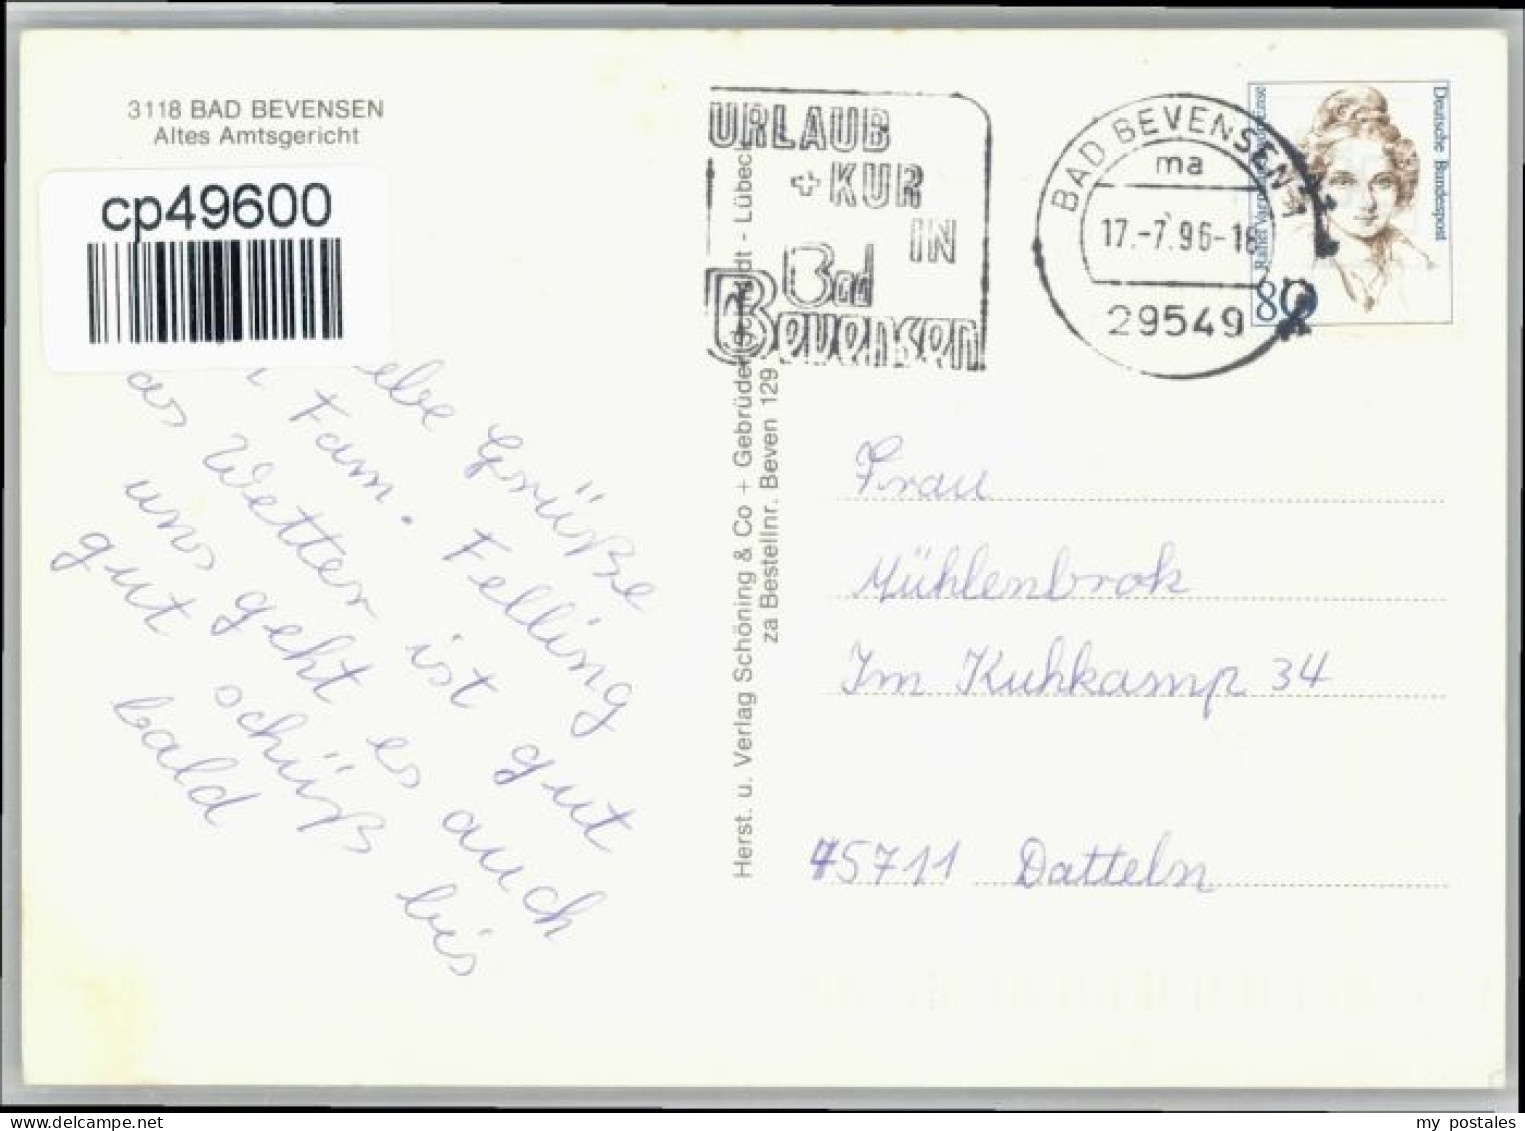 3118 BAD BEVENSEN
Altes Amtsgericht
cp49600
URLAUB
+ KUR
IN
Bad
Bevensen
BAD BEVENSEN 1
ma
17.-7.96-18
29549
Deutsche Bundespost
80
Grüße
Fam. Felling
Wetter ist gut
uns geht es auch
gut schüß bis
bald
Herst. u. Verlag Schöning & Co + Gebrüder Schmidt - Lübeck
za Bestellnr. Beven 129
Frau
Mühlenbrok
Im Kuhkamp 34
45711 Datteln
my postales